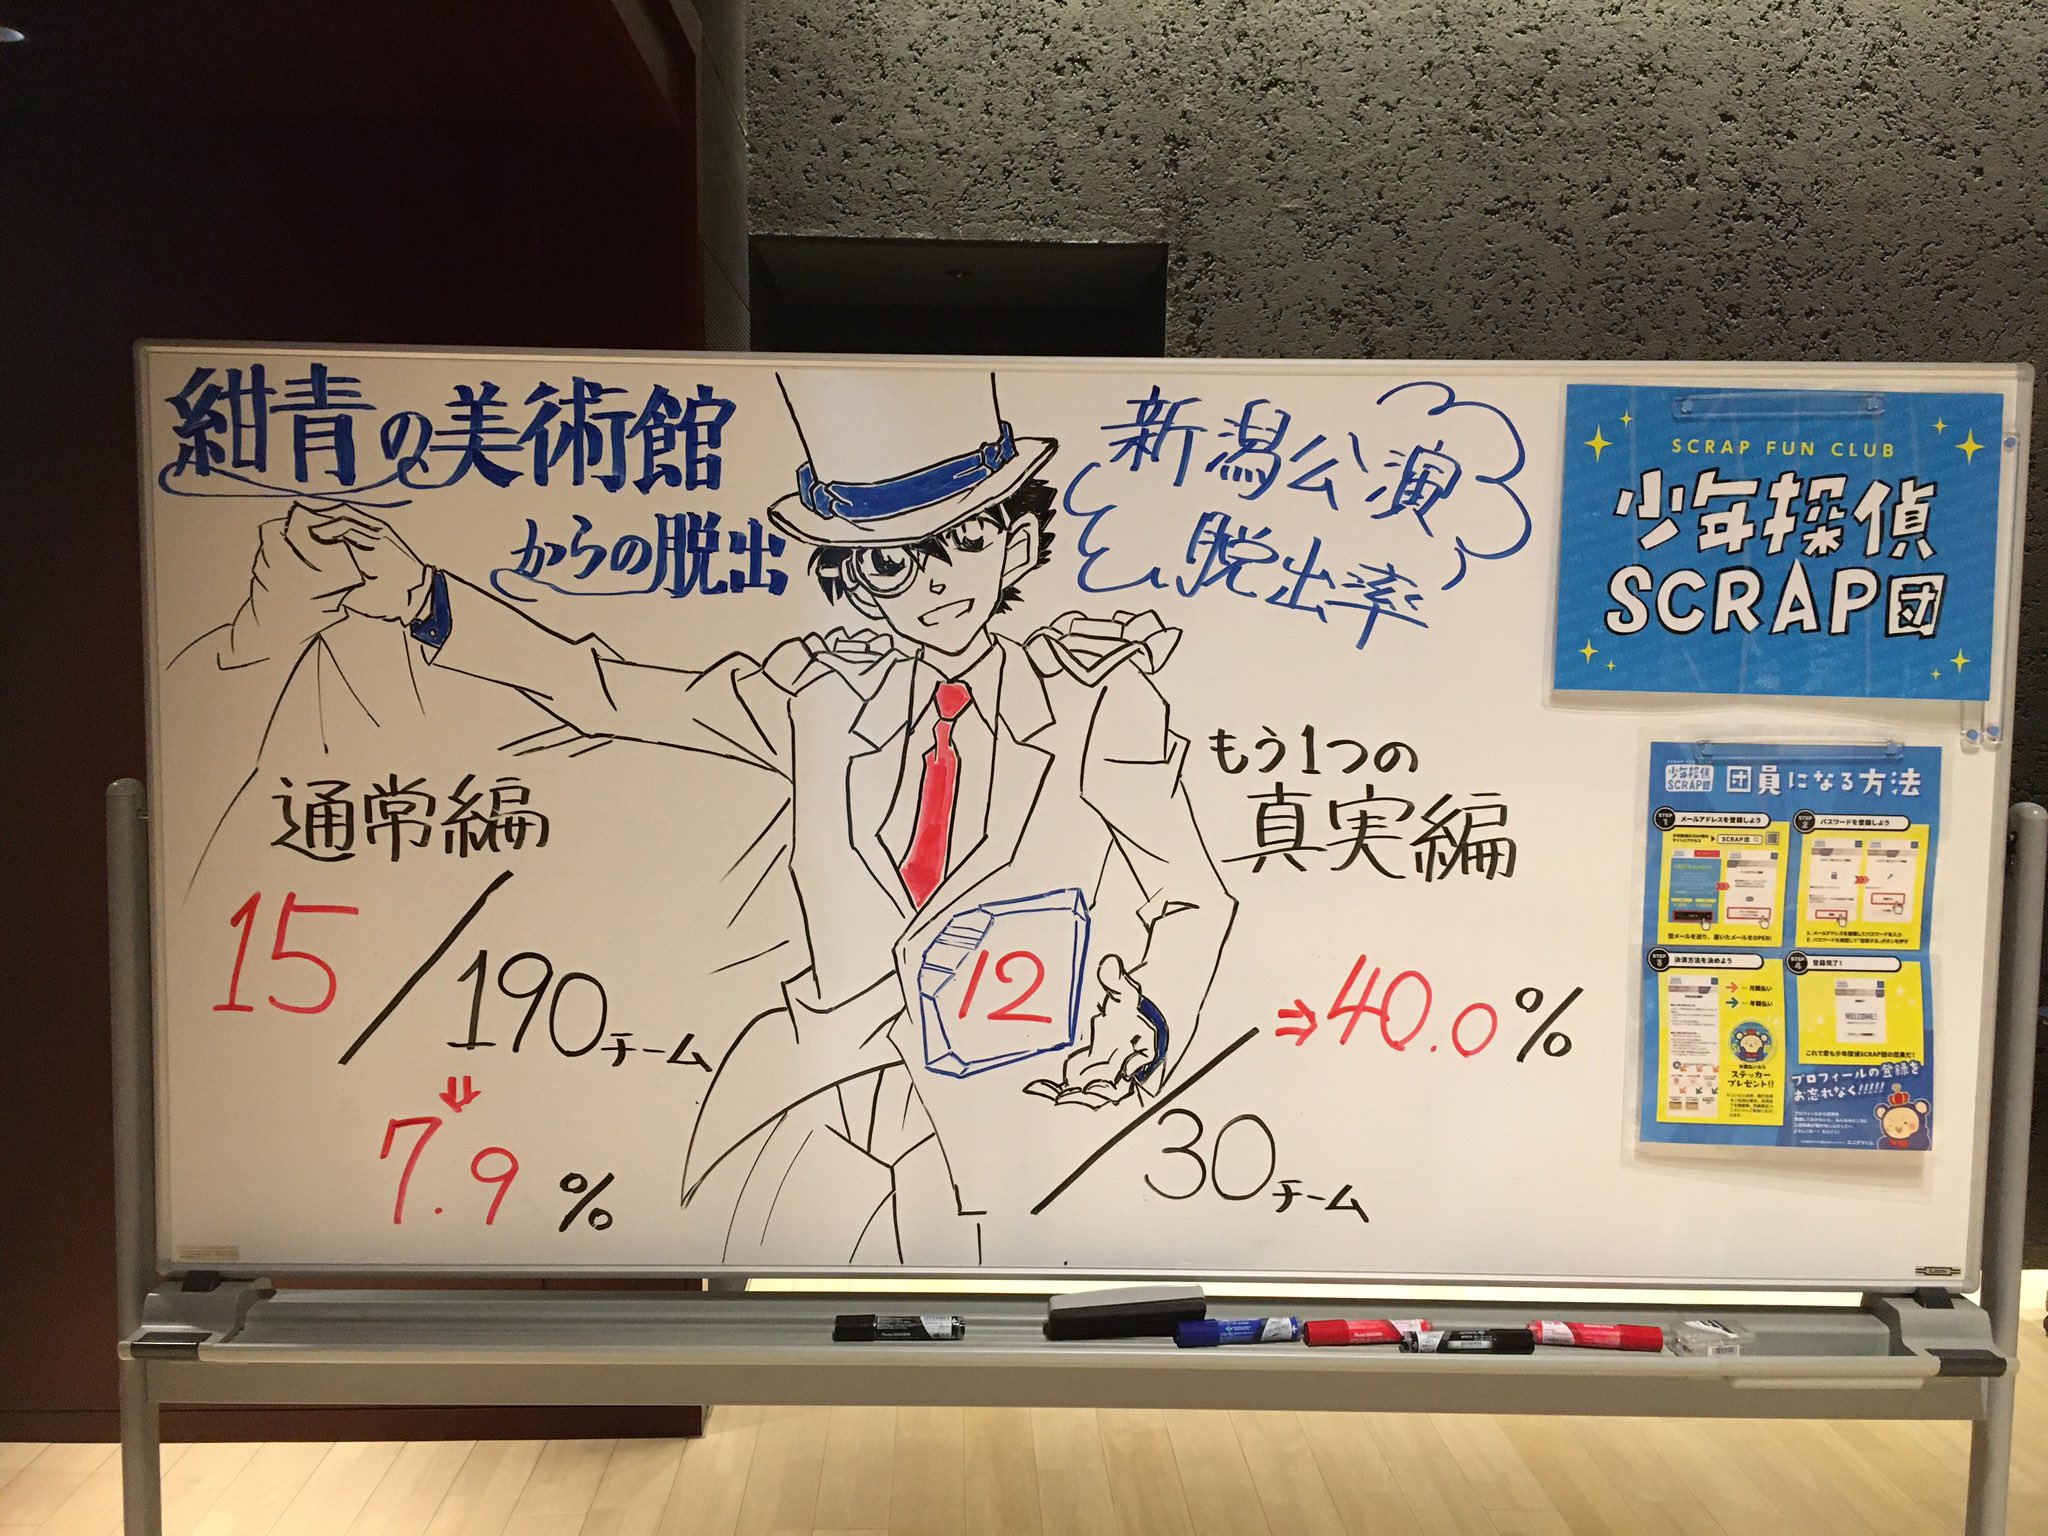 紺青の美術館
からの脱出
新潟公演
脱出率
通常編
15/190チーム
⇓
7.9%
もう1つの
真実編
12/30チーム
⇒40.0%
SCRAP FUN CLUB
少年探偵
SCRAP団
SCRAP FUN CLUB
少年探偵
SCRAP団
団員になる方法
STEP 1
メールアドレスを登録しよう
SCRAP団
空メールを送り、届いたメールをOPEN!
STEP 2
パスワードを登録しよう
1. メールアドレスを確認してパスワードを入力
2. パスワードを確認して「登録する」ボタンを押す
STEP 3
決済方法を決めよう
→…月額払い
→…年額払い
年額払いなら
ステッカー
プレゼント!!
STEP 4
登録完了!
WELCOME!
これで君も少年探偵SCRAP団の団員だ!
プロフィールの登録を
お忘れなく!!!!!
LION